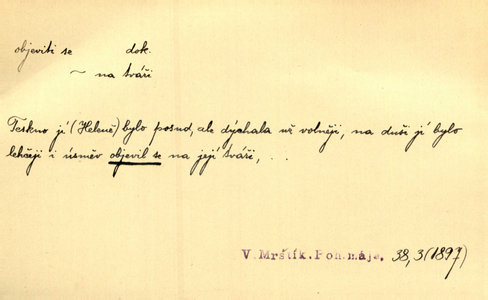 objeviti se dok.
~ na tváři
Teskno jí (Heleně) bylo posud, ale dýchala už volněji, na duši jí bylo
lehčeji i úsměv objevil se na její tváři, . .
V. Mrštík. Poh. mája, 38, 3 (1897)